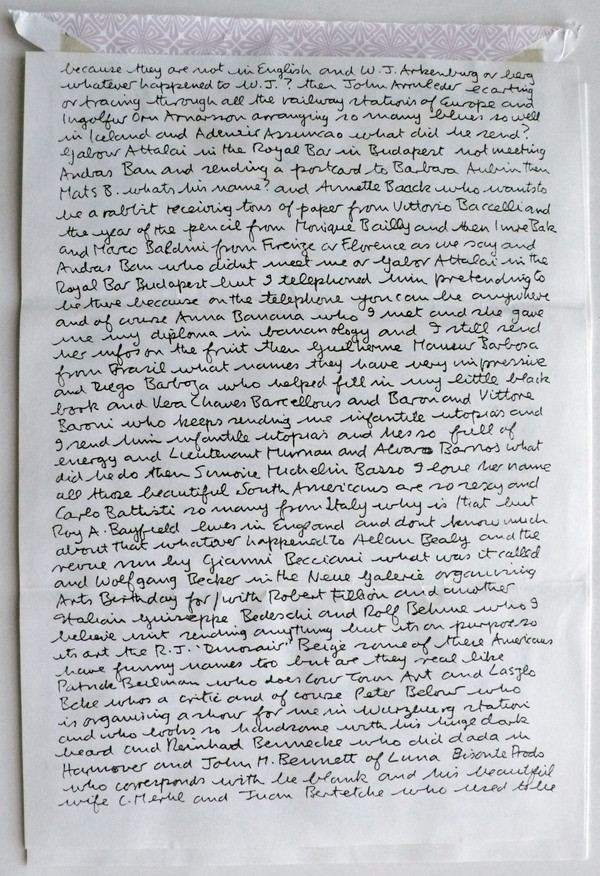 because they are not in English and W.J. Arkenburg or berg
whatever happened to W.J.? then John Armleder ecarting
or tracing through all the railway stations of Europe and
Ingolfur Orn Arnarsson arranging so many blues so well
in Iceland and Ademir Assuncao what did he send?
Gabour Attalai in the Royal Bar in Budapest not meeting
Andras Ban and sending a postcard to Barbara Aubin then
Mats B. whats his name? and Annette Baack who wants to
be a rabbit receiving tons of paper from Vittorio Baccelli and
the year of the pencil from Monique Bailly and then Imre Bak
and Marco Baldini from Firenze or Florence as we say and
Andras Ban who didnt meet me or Gabor Attalai in the
Royal Bar Budapest but I telephoned him pretending to
be there because on the telephone you can be anywhere
and of course Anna Banana who I met and she gave
me my diploma in bananology and I still send
her infos on the fruit then Guilherme Mansur Barbosa
from Brazil what names they have very impressive
and Diego Barboza who helped fill in my little black
book and Vera Chaves Barcellous and Baron and Vittore
Baroni who keeps sending me infantile utopias and
I send him infantile utopias and hes so full of
energy and Lieutenant Murnau and Alvaro Barrios what
did he do then Simone Michelin Basso I love her name
all those beautiful South Americans are so sexy and
Carlo Battisti so many from Italy why is that but
Roy A. Bayfield lives in England and dont know much
about that whatever happened to Allan Bealy and the
revue run by Gianni Becciani what was it called
and Wolfgang Becker in the Neue Galerie organising
Arts Birthday for/with Robert Fillion and another
Italian Guiseppe Bedeschi and Rolf Behme who I
believe isnt sending anything but its on purpose so
its art the R.J. "Dinosair" Berge some of these Americans
have funny names too but are they real like
Patrick Beilman who does Cow Town Art and Laszlo
Beke whos a critic and of course Peter Below who
is organising a show for me in Wurzburg station
and who looks so handsome with his huge dark
beard and Reinhad Bennecke who did dada in
Hannover and John M. Bennett of Luna Bisonte Prods
who corresponds with le blank and his beautiful
wife C. Mehl and Juan Bertetche who used to be